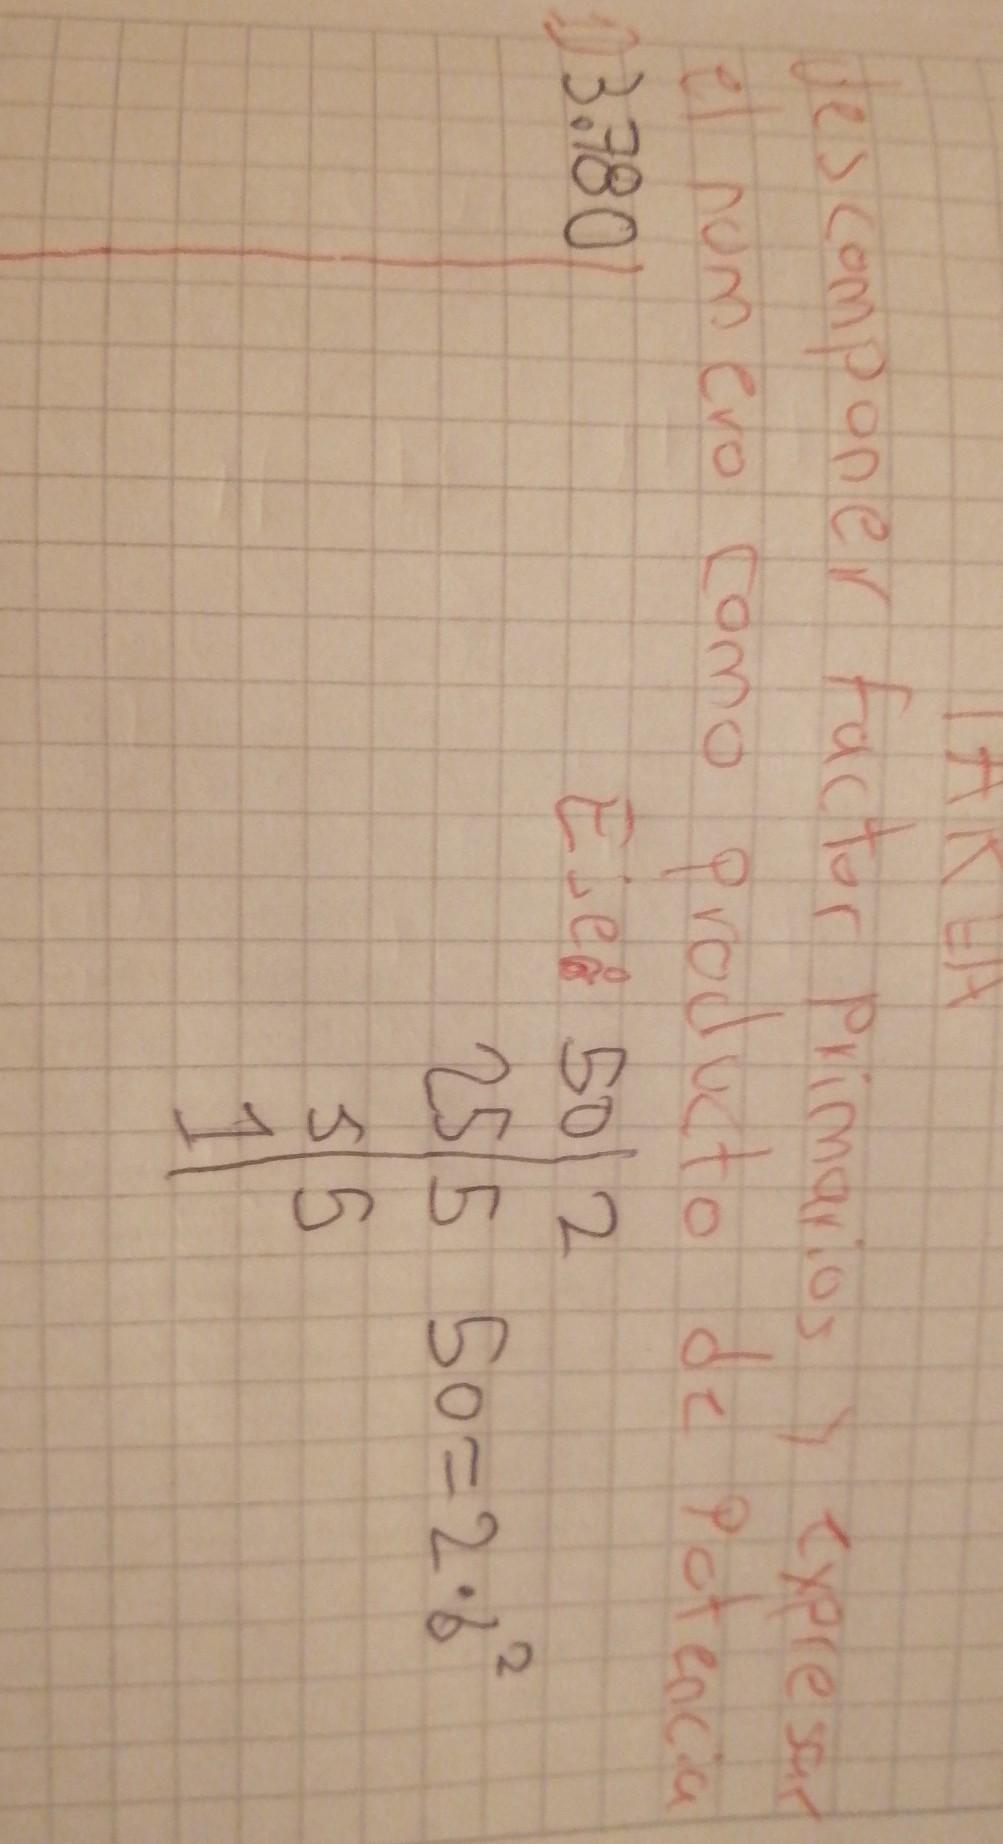 TAREA
descomponer factor primarios y expresar
el numero como producto de potencia
1) 3.780 Eje: 50 2
25 5
5 5 50=2.6²
1